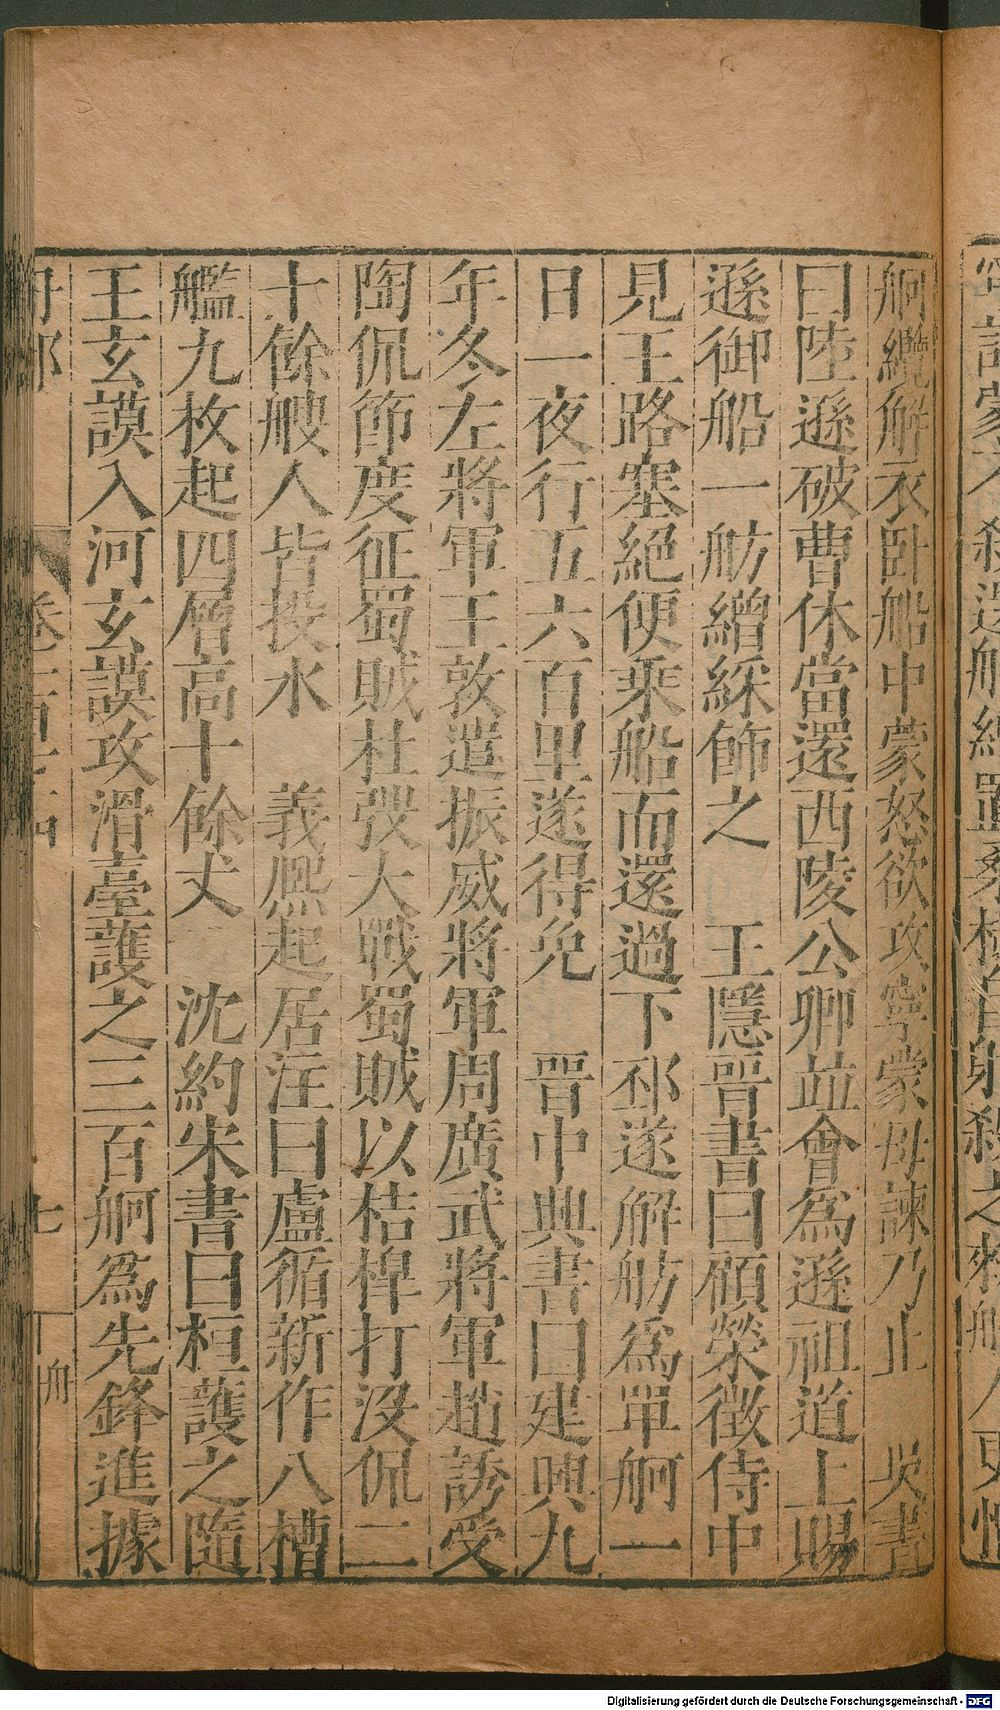 舸纜解衣臥船中蒙怒欲攻寧蒙母諫乃止　吳書
曰陸遜破曹休當還西陵公卿並會為遜祖道上賜
遜御船一舫繒綵飾之　王隱晉書曰顧榮徵侍中
見王路塞絕便乘船而還過下邳遂解舫為單舸一
日一夜行五六百里遂得免　晉中興書曰建興九
年冬左將軍王敦遣振威將軍周廣武將軍趙誘受
陶侃節度征蜀賊杜弢大戰蜀賊以桔槹打沒侃二
十餘艘人皆投水　義熙起居注曰盧循新作八槽
艦九枚起四層高十餘丈　沈約宋書曰桓護之隨
王玄謨入河玄謨攻滑臺護之三百舸為先鋒進據
七
舟
Digitalisierung gefördert durch die Deutsche Forschungsgemeinschaft - DFG